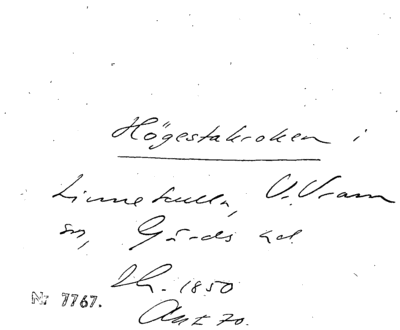 Högestakroken i
Linnetulla, V. Vram
sn, Gärds hd.
1850
Nr 7767.
Ant 70.